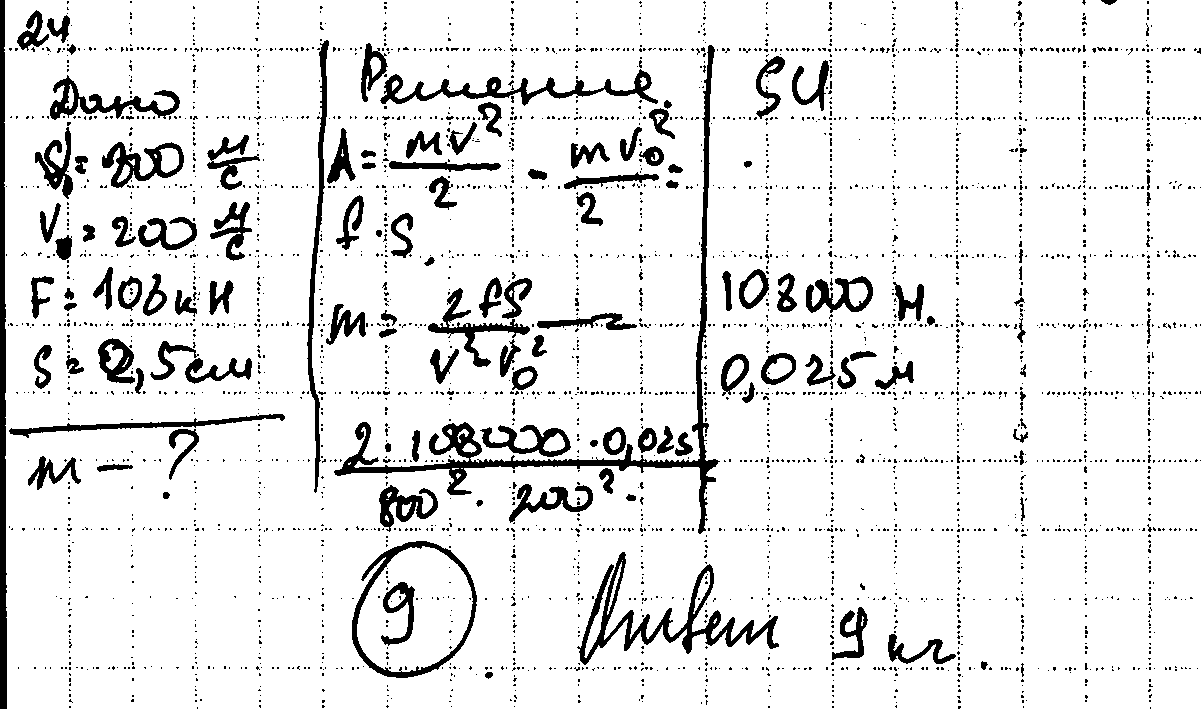 24.
Дано
V₀ = 800 м/с
V = 200 м/с
F = 108 кН
S = 2,5 см
m – ?
Решение.
A = mv²/2 - mv₀²/2 =
f · S.
m = 2fS / v² - v₀² =
2 · 108000 · 0,025 / 800² · 200² =
9
SI
108000 Н.
0,025 м
Ответ 9 кг.